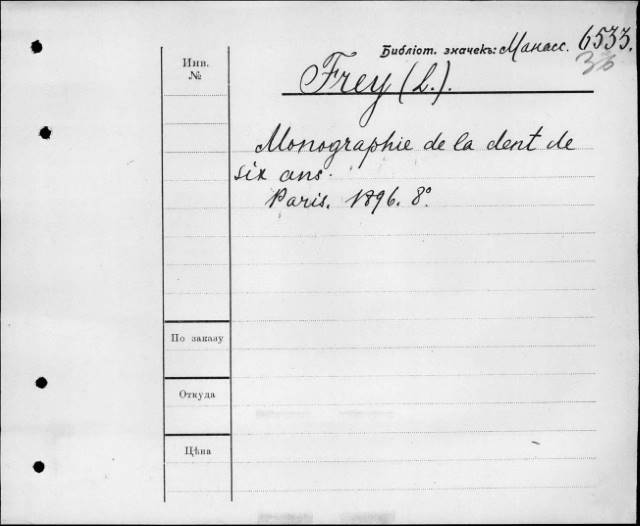 Библіот. значекъ: Манасс. 6533.
36
Инв.
№
Frey (L.).
Monographie de la dent de
six ans.
Paris. 1896. 8°.
По заказу
Откуда
Цѣна